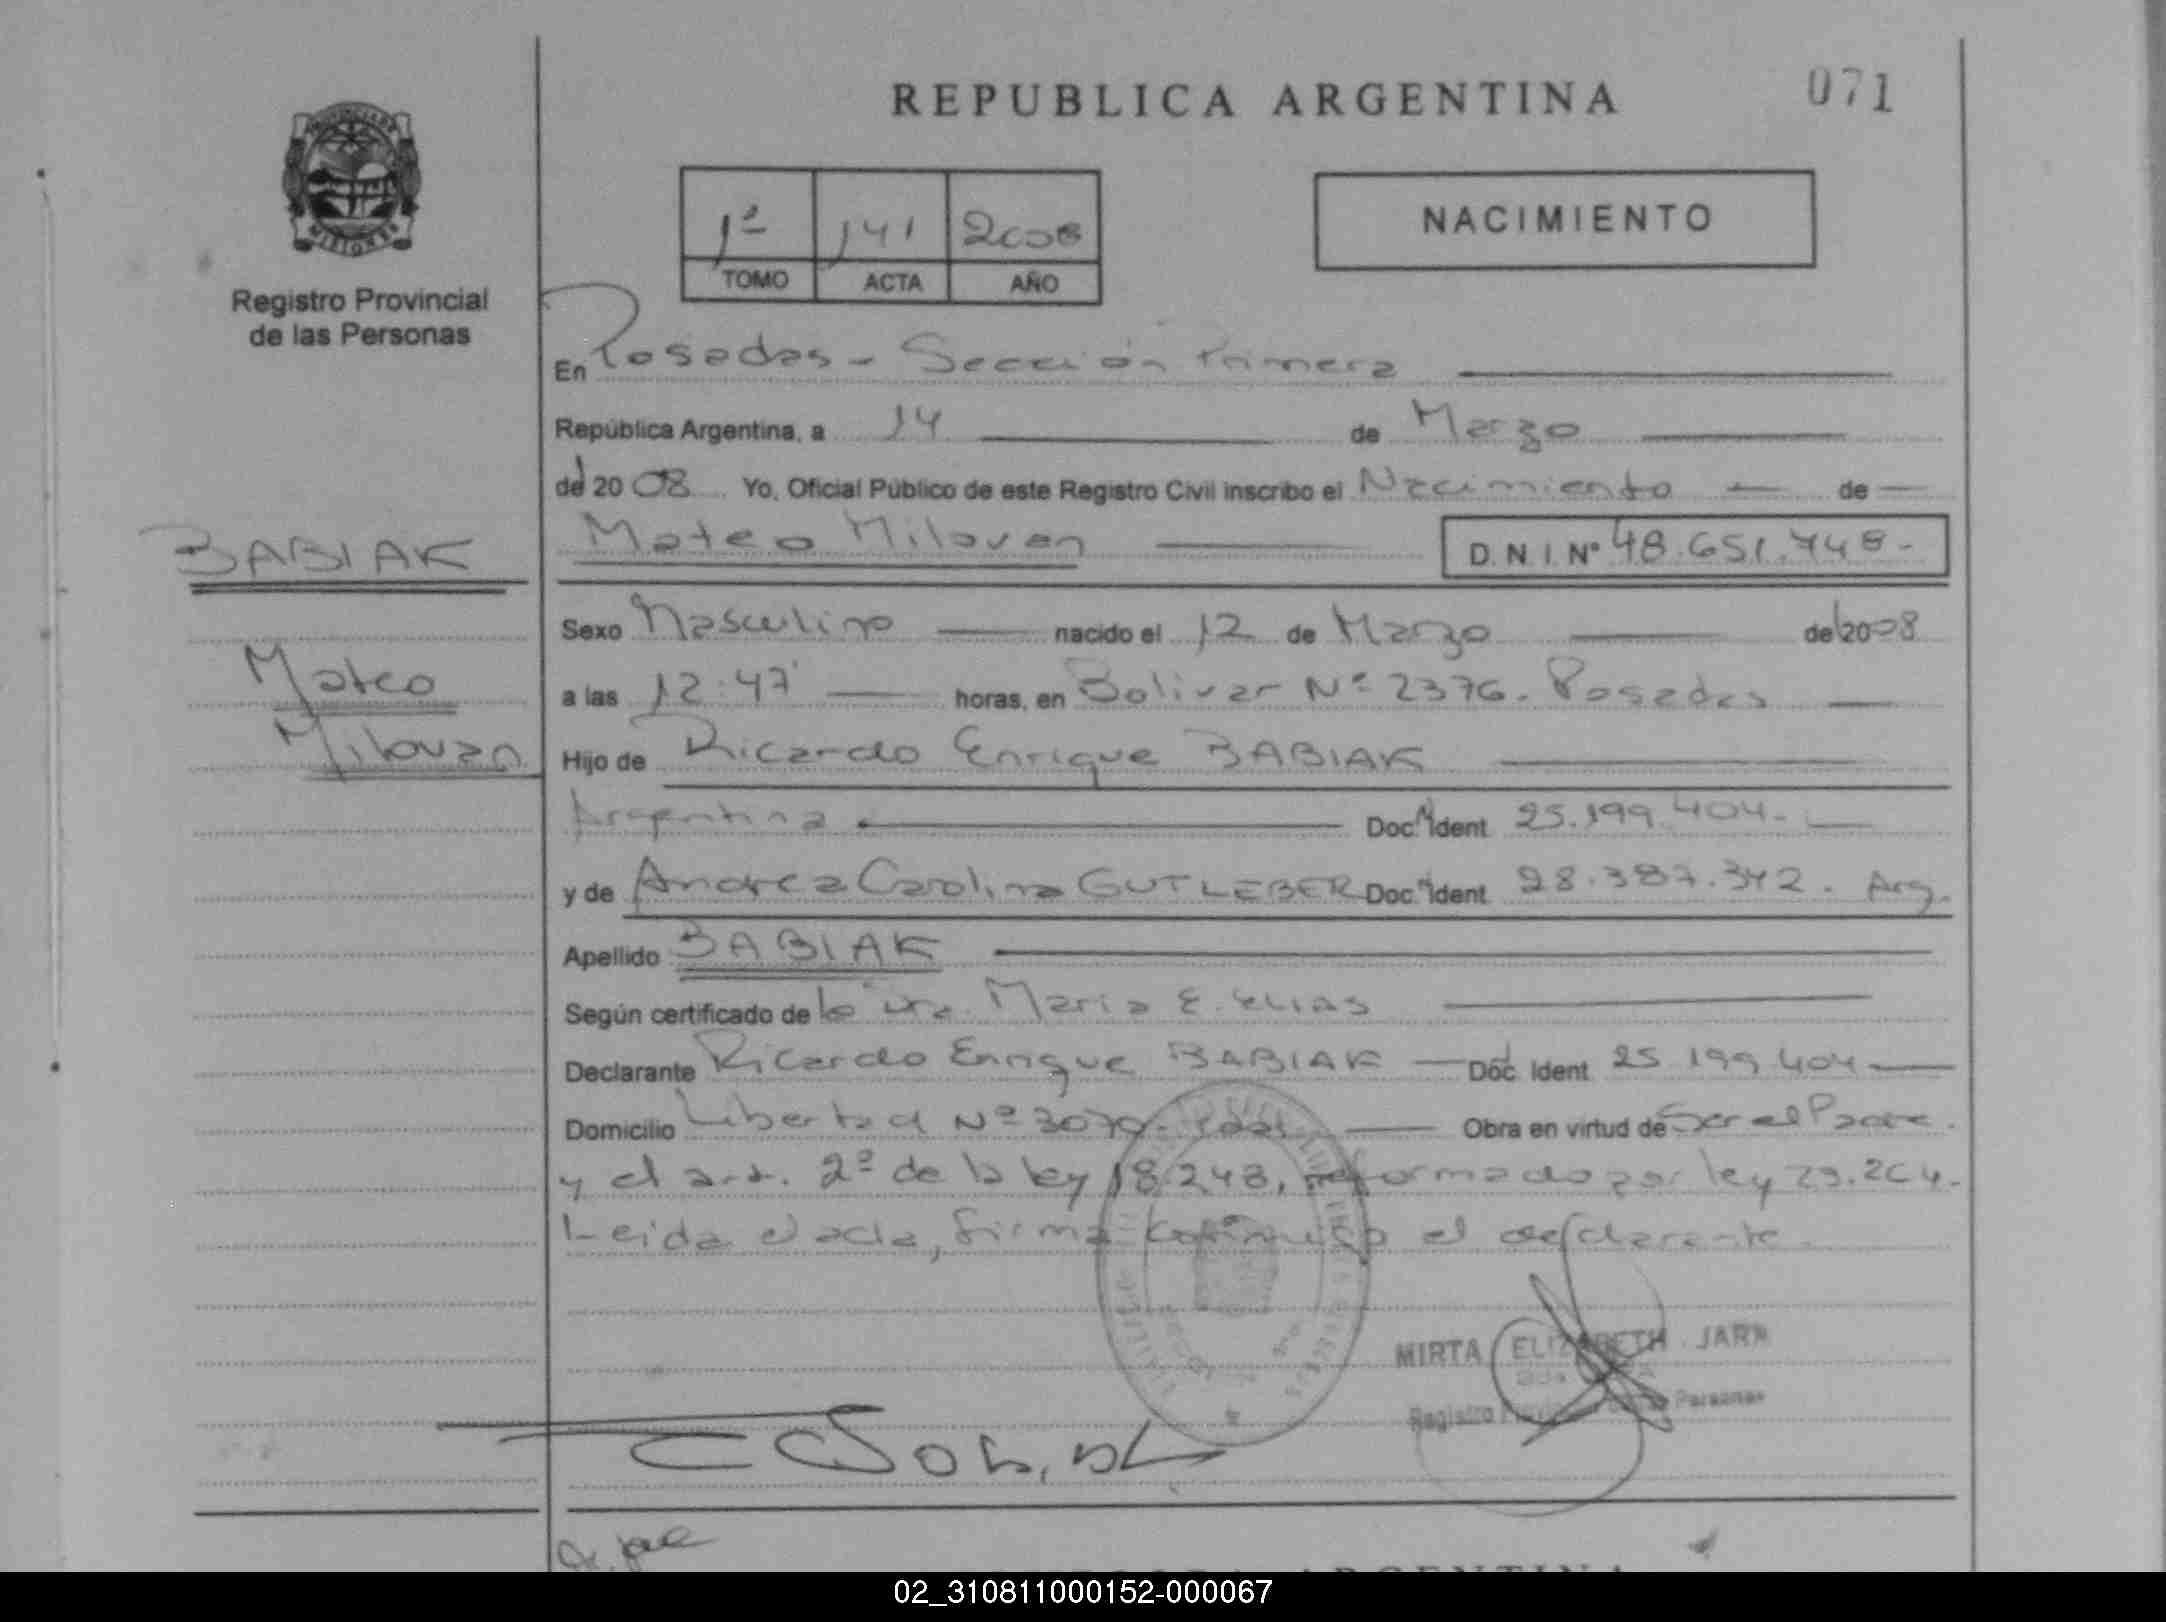 REPUBLICA ARGENTINA
071
PROVINCIA DE
MISIONES
Registro Provincial
de las Personas
1ª 141 2008
TOMO ACTA AÑO
NACIMIENTO
En Posadas - Sección Primera
República Argentina, a 14 de Marzo
del 2008 Yo, Oficial Público de este Registro Civil inscribo el Nacimiento de
BABIAK
Mateo Milovan
D.N.I. Nº 48.651.748-
Sexo Masculino nacido el 12 de Marzo del 2008
Mateo
a las 12:47' horas, en Bolivar Nº 2376. Posadas
Milovan
Hijo de Ricardo Enrique BABIAK
Argentina Doc. Ident 25.199.404.
y de Andrea Carolina GUTLEBER Doc. Ident 28.387.342. Arg.
Apellido BABIAK
Según certificado de la Dra. Maria E. ELIAS
Declarante Ricardo Enrique BABIAK Doc. Ident 25.199.404
Domicilio Libertad Nº 3070. Obra en virtud de Ser el Padre.
y el art. 2º de la ley 18.248, reformado por ley 23.264.
Leida el acta, firma conmigo el declarante.
MIRTA ELIZABETH JARA
Registro Provincial de las Personas
REPUBLICA ARGENTINA
02_310811000152-000067